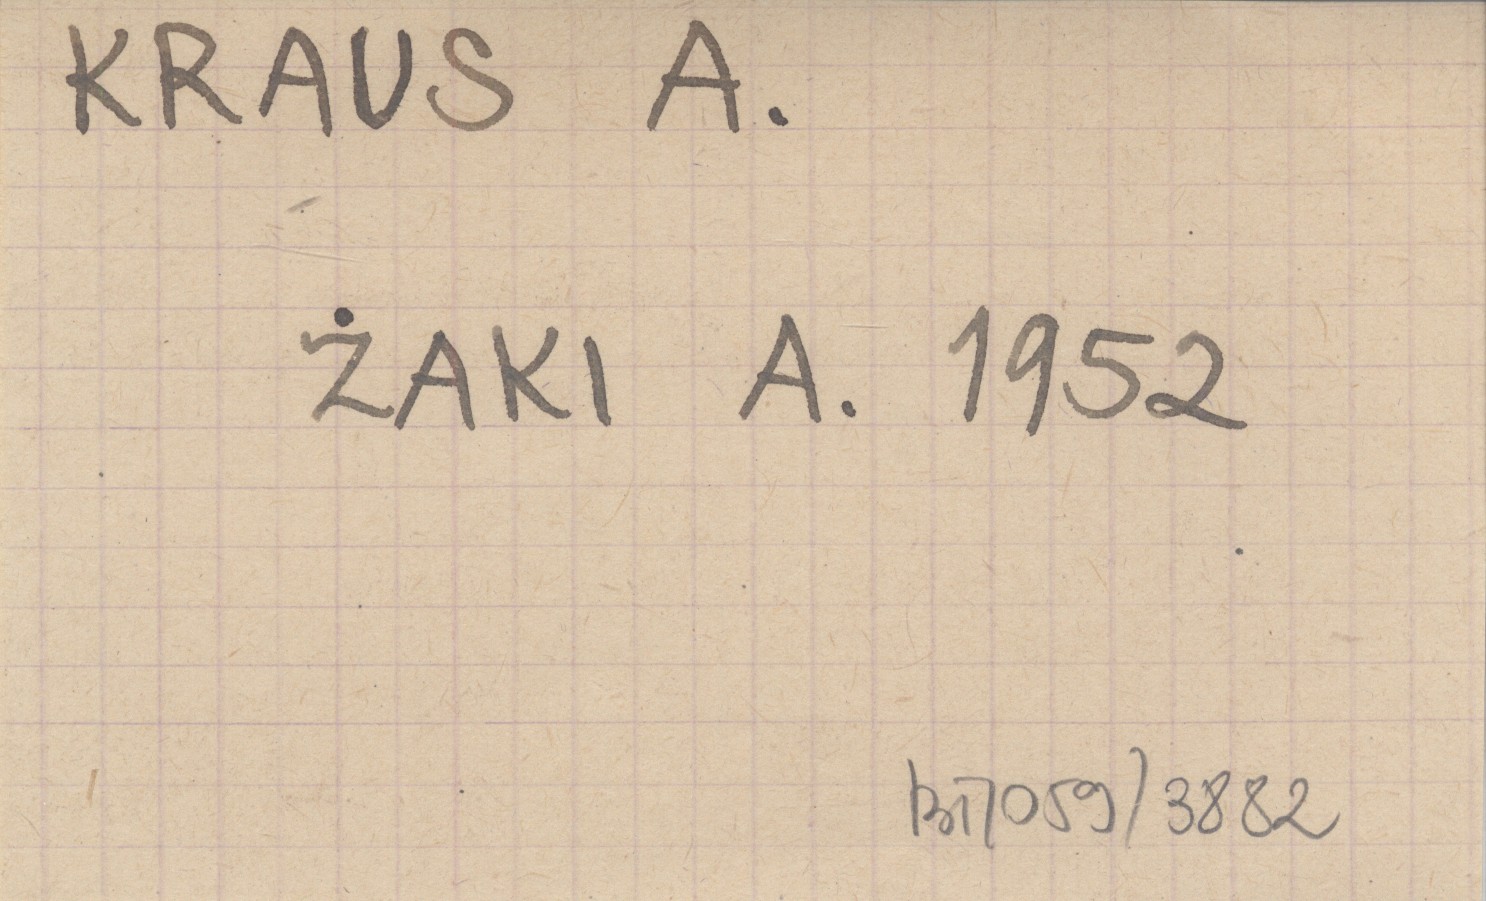 KRAUS A.
ŻAKI A. 1952
/3882